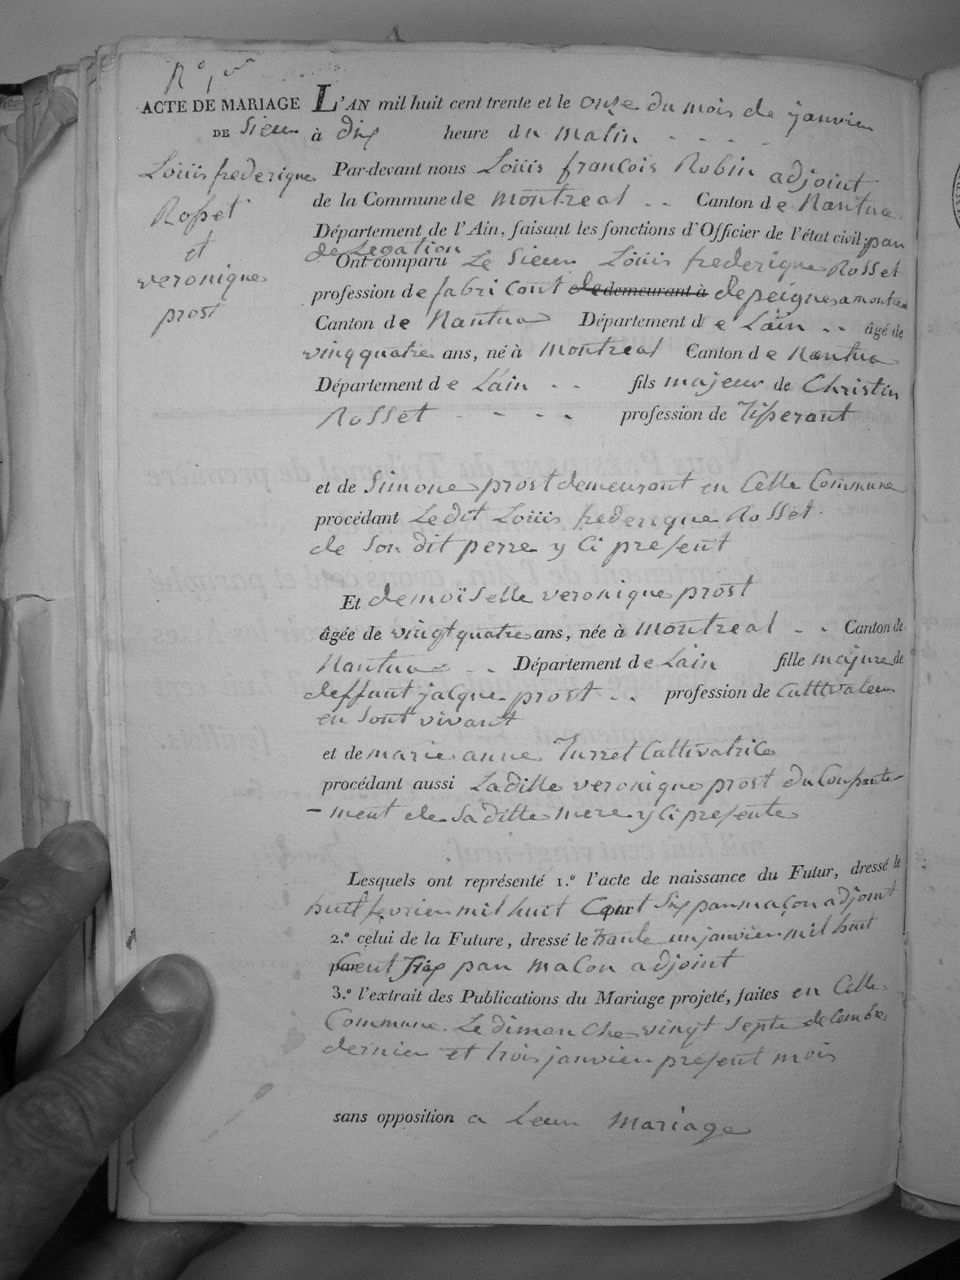 N.º 1er
ACTE DE MARIAGE
DE Sieur
Loüis frederique
Rosset
et
veronique
prost
L'AN mil huit cent trente et le onze du mois de janvier
à dix heure du matin
Par-devant nous Loüis françois Robin adjoint
de la Commune de montreal Canton de Nantua
Département de l'Ain, faisant les fonctions d'Officier de l'état civil; par
de Legation
Ont comparu Le Sieur Loüis frederique Rosset
profession de fabricont de demeurant à de peignes a montrea
Canton de Nantua Département de L'ain âgé de
vingquatre ans, né à montreal Canton de Nantua
Département de L'ain fils majeur de Christin
Rosset profession de Tisserant
et de Simone prost demeurant en Cette Commune
procédant Ledit Loüis frederique Rosset
de son dit perre y Ci present
Et demoïselle veronique prost
âgée de vingtquatre ans, née à montreal Canton de
Nantua Département de L'ain fille majure de
deffunt jacque prost profession de Cultivateur
en sont vivant
et de marie anne Turrel Cultivatrice
procédant aussi Laditte veronique prost du Consente-
-ment de saditte mere y Ci presente
Lesquels ont représenté 1.º l'acte de naissance du Futur, dressé le
huit fevrier mil huit Cent Six par maçon adjoint
2.º celui de la Future, dressé le trante un janvier mil huit
par Cent Six par maçon adjoint
3.º l'extrait des Publications du Mariage projeté, faites en Cette
Commune Le dimanche vingt septe decembre
dernier et trois janvier present mois
sans opposition a Leur mariage